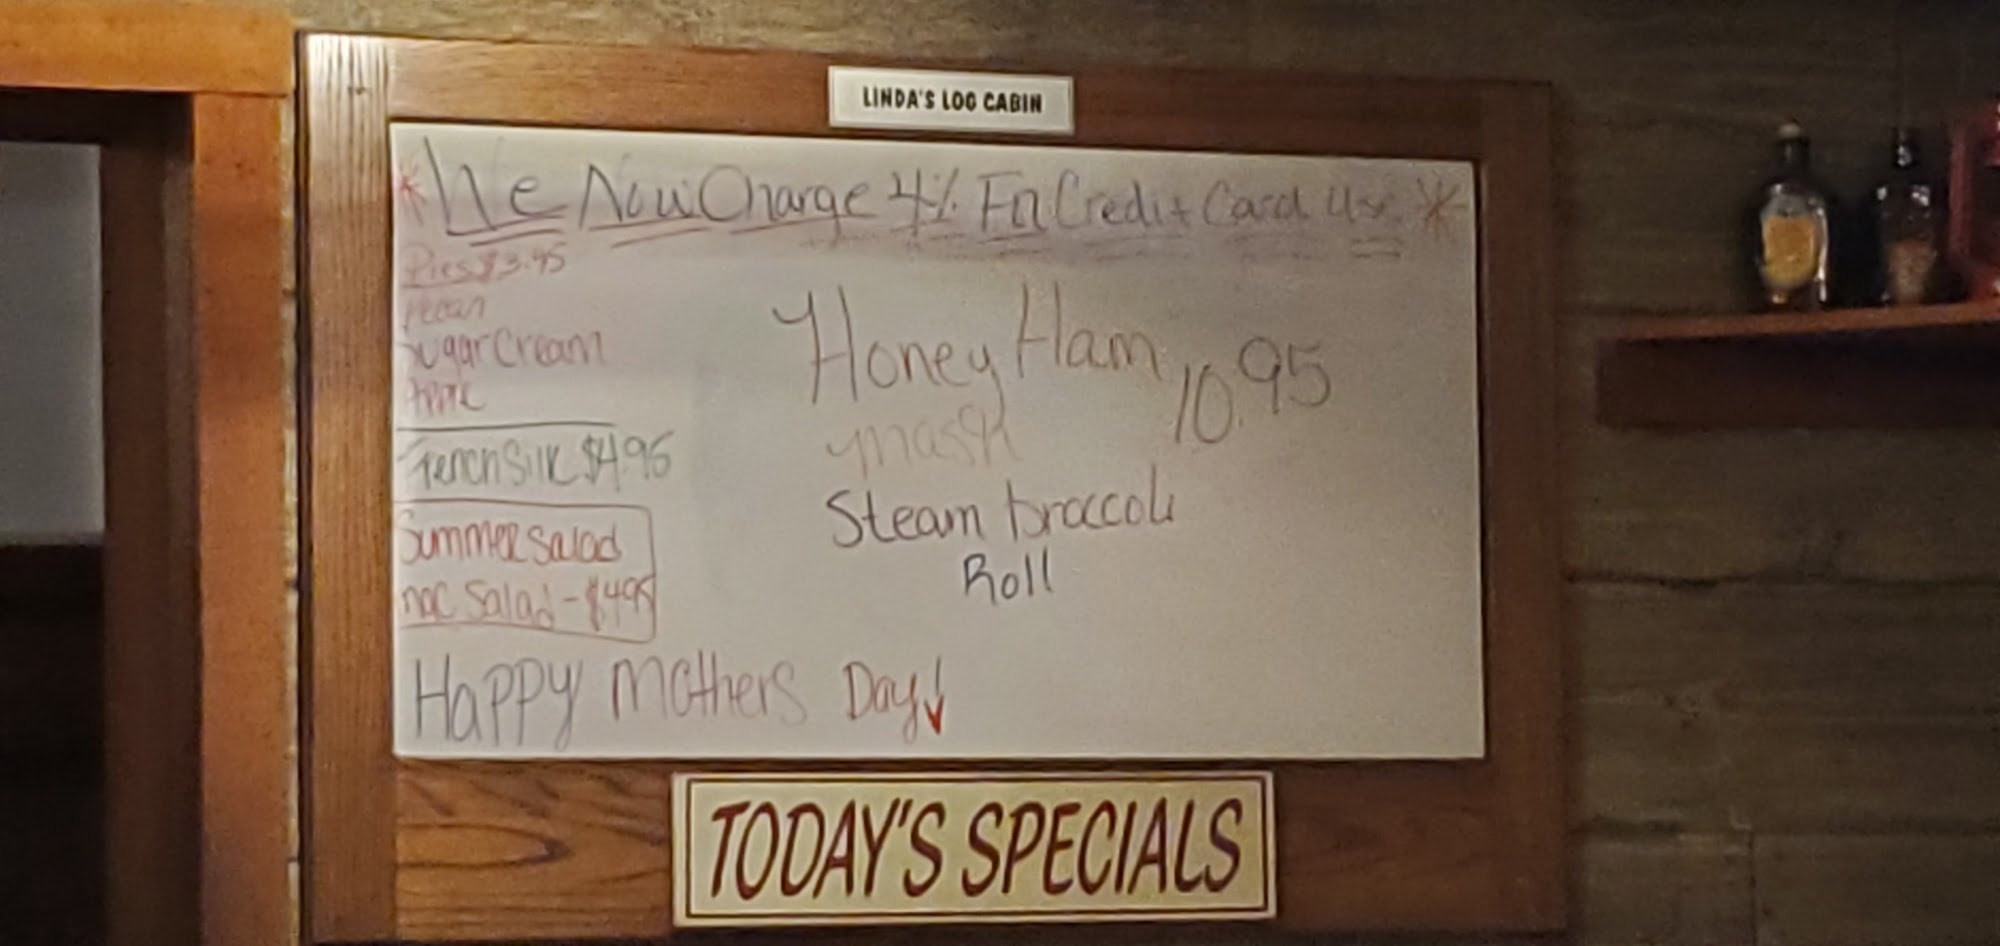 LINDA'S LOG CABIN
*We Now Charge 4% For Credit Card Use *
Pies $3.95
Pecan
Sugar Cream
Apple
French Silk $4.95
Summer Salad
mac Salad - $4.95
Honey Ham 10.95
mash
Steam broccoli
Roll
Happy Mothers Day!
TODAY'S SPECIALS